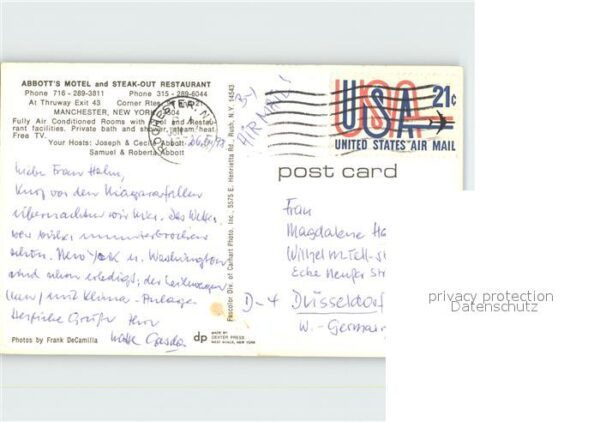 ABBOTT'S MOTEL and STEAK-OUT RESTAURANT
Phone 716 - 289-3811 Phone 315 - 289-6044
At Thruway Exit 43 Corner Rtes. 21
MANCHESTER, NEW YORK
Fully Air Conditioned Rooms with Pool and Restau-
rant facilities. Private bath and shower, steam heat.
Free TV.
Your Hosts: Joseph & Cecile Abbott
Samuel & Roberta Abbott
Liebe Frau Hahn,
Kurz vor den Niagarafällen
übernachten wir hier. Das Wetter
war bisher ununterbrochen
schön. New York u. Washington
sind schon erledigt; der Leihwagen
mit Klima-Anlage
Herzliche Grüße Ihre
Photos by Frank DeCamilla
Fuscolor Div. of Calhart Photo, Inc., 5575 E. Henrietta Rd., Rush, N.Y. 14543
dp
MADE BY
DEXTER PRESS
WEST NYACK, NEW YORK
ROCHESTER, N
AIR MAIL!
USA 21c
UNITED STATES AIR MAIL
post card
Frau
Magdalene Ha
Wilhelm Tell-St
Ecke
D-4 Düsseldorf
W.-German
privacy protection
Datenschutz